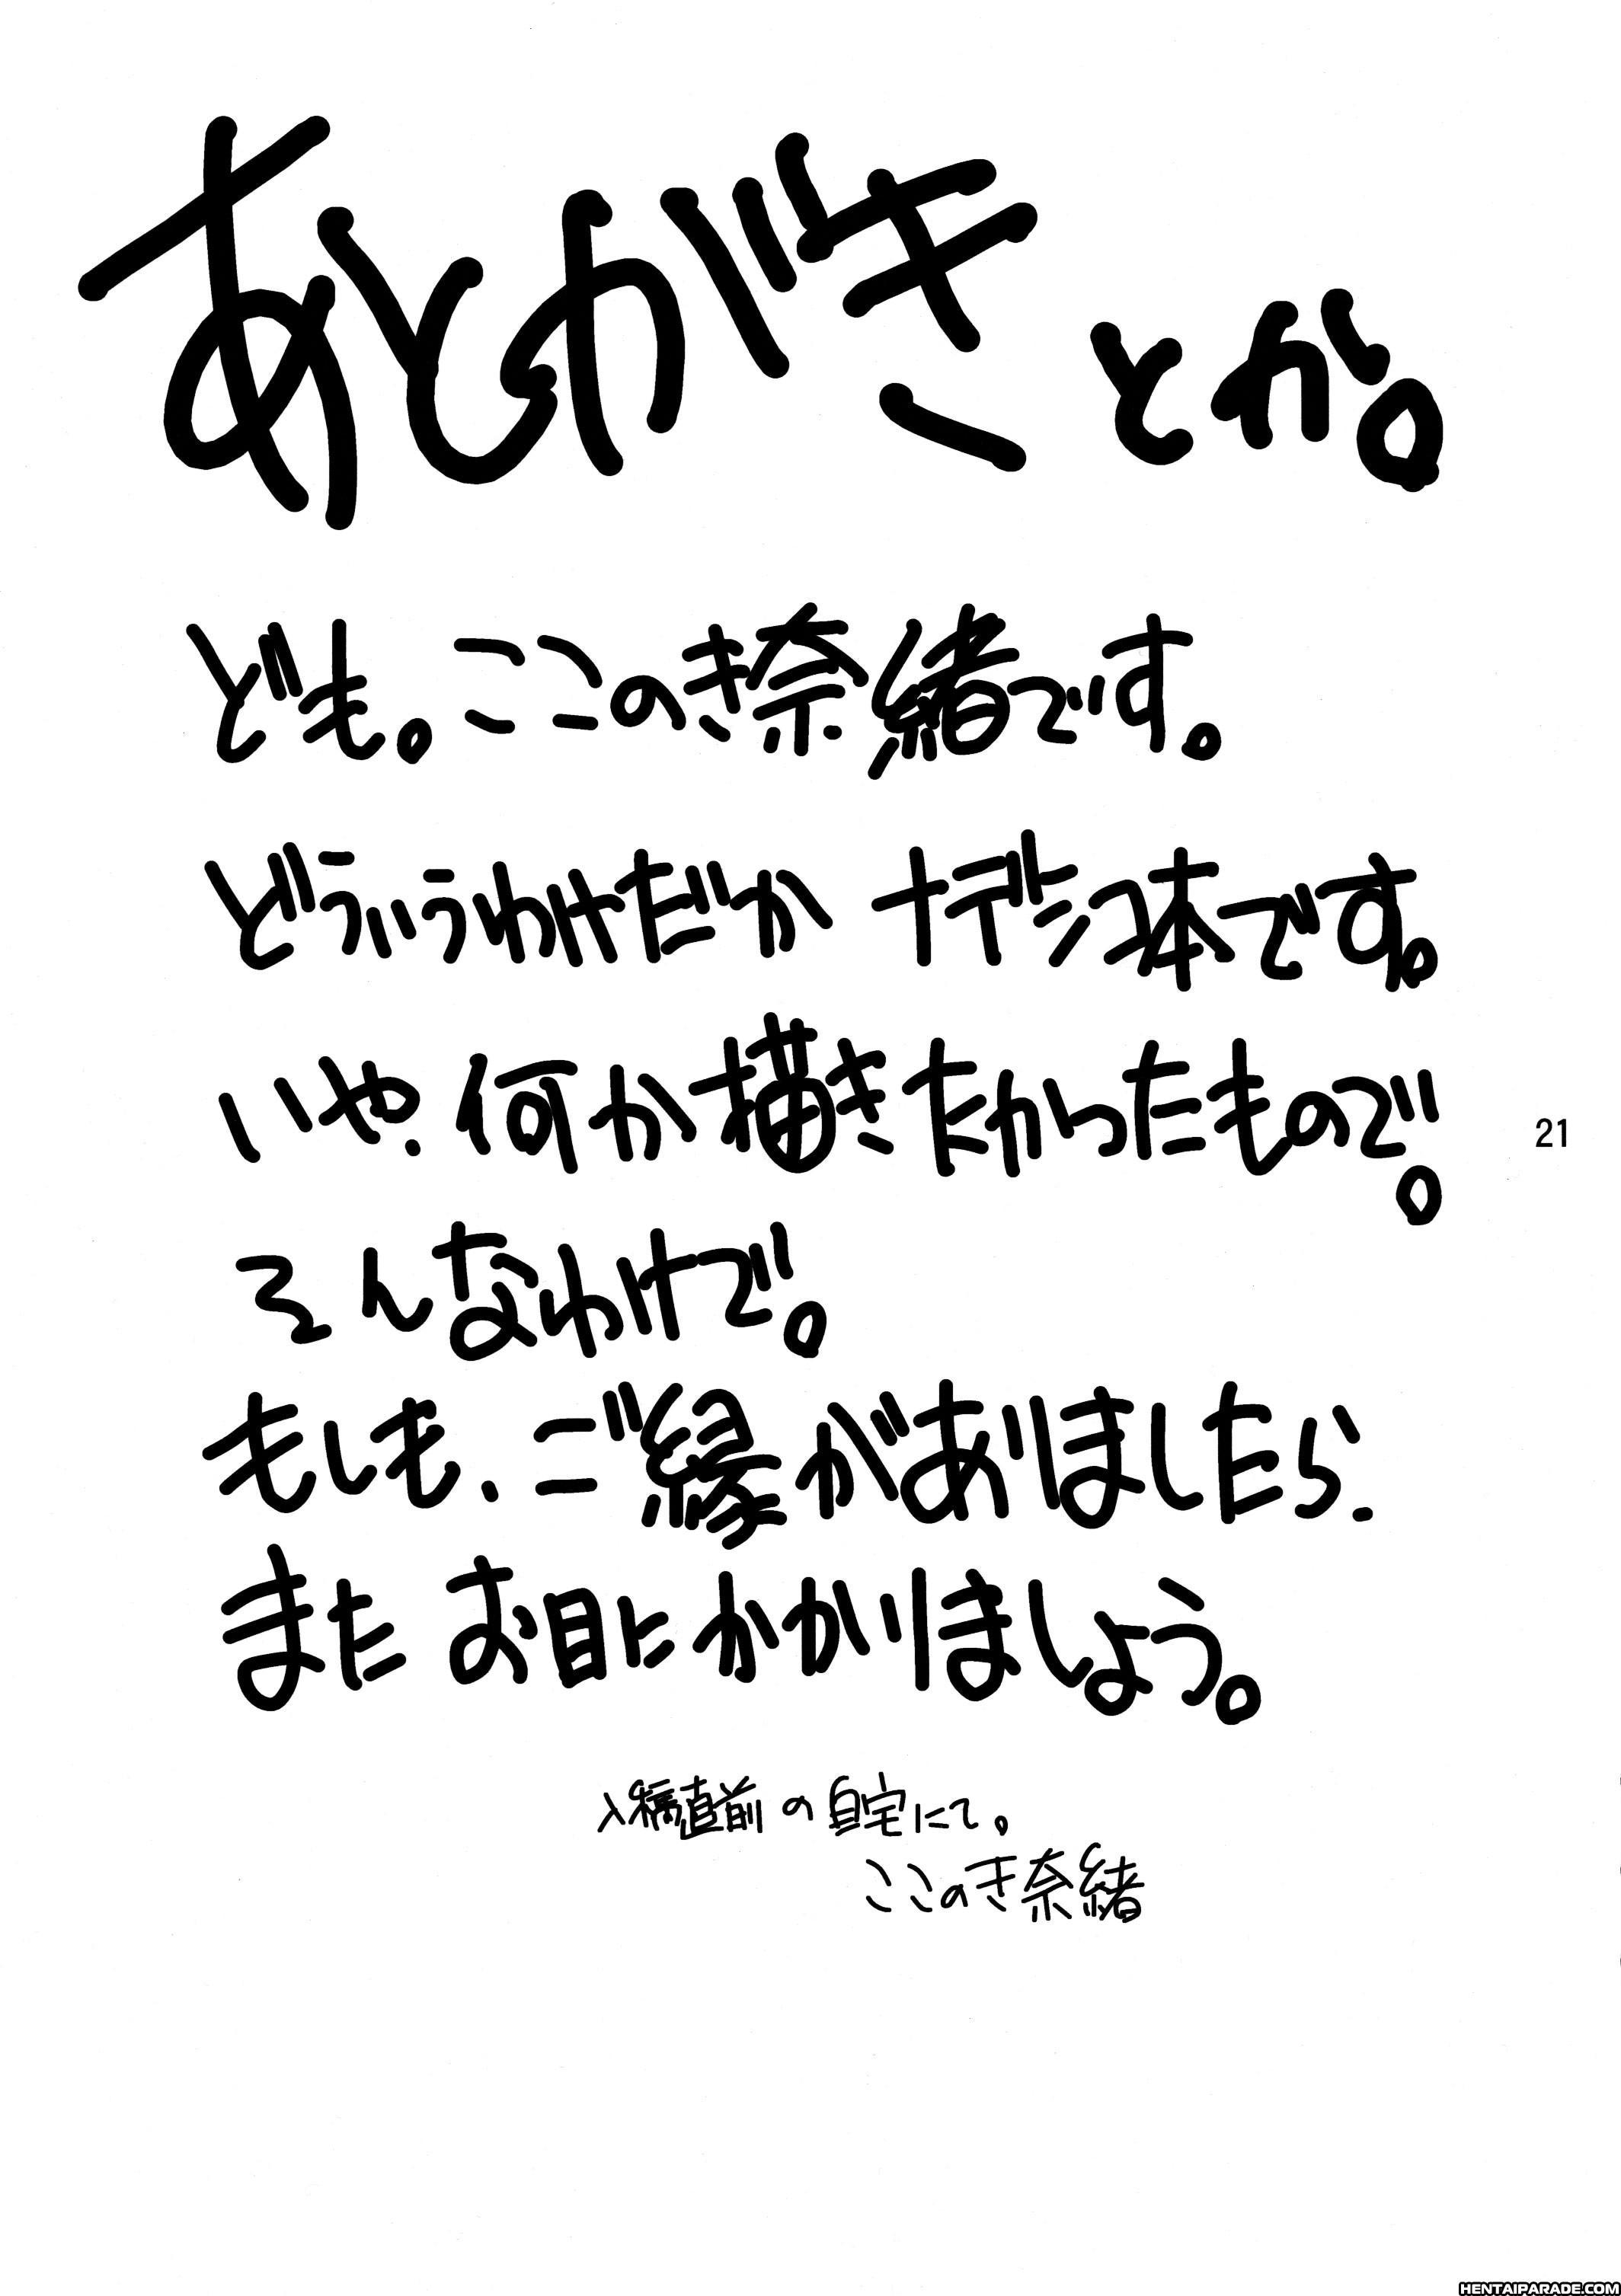 あとがきとか。
ども。ここのき奈緒です。
どういうわけだか ナデシコ本です。
いや、何か描きたかったもので。
21
そんなわけで。
もしも、ご縁がありましたら、
またお目にかかりましょう。
入稿直前の自宅にて。
ここのき奈緒
HENTAIPARADE.COM